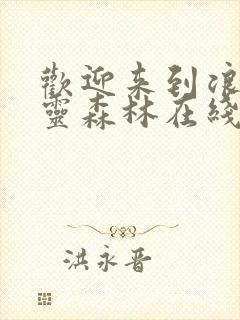 歡迎来到浪
靈森林在綫
洪永晋